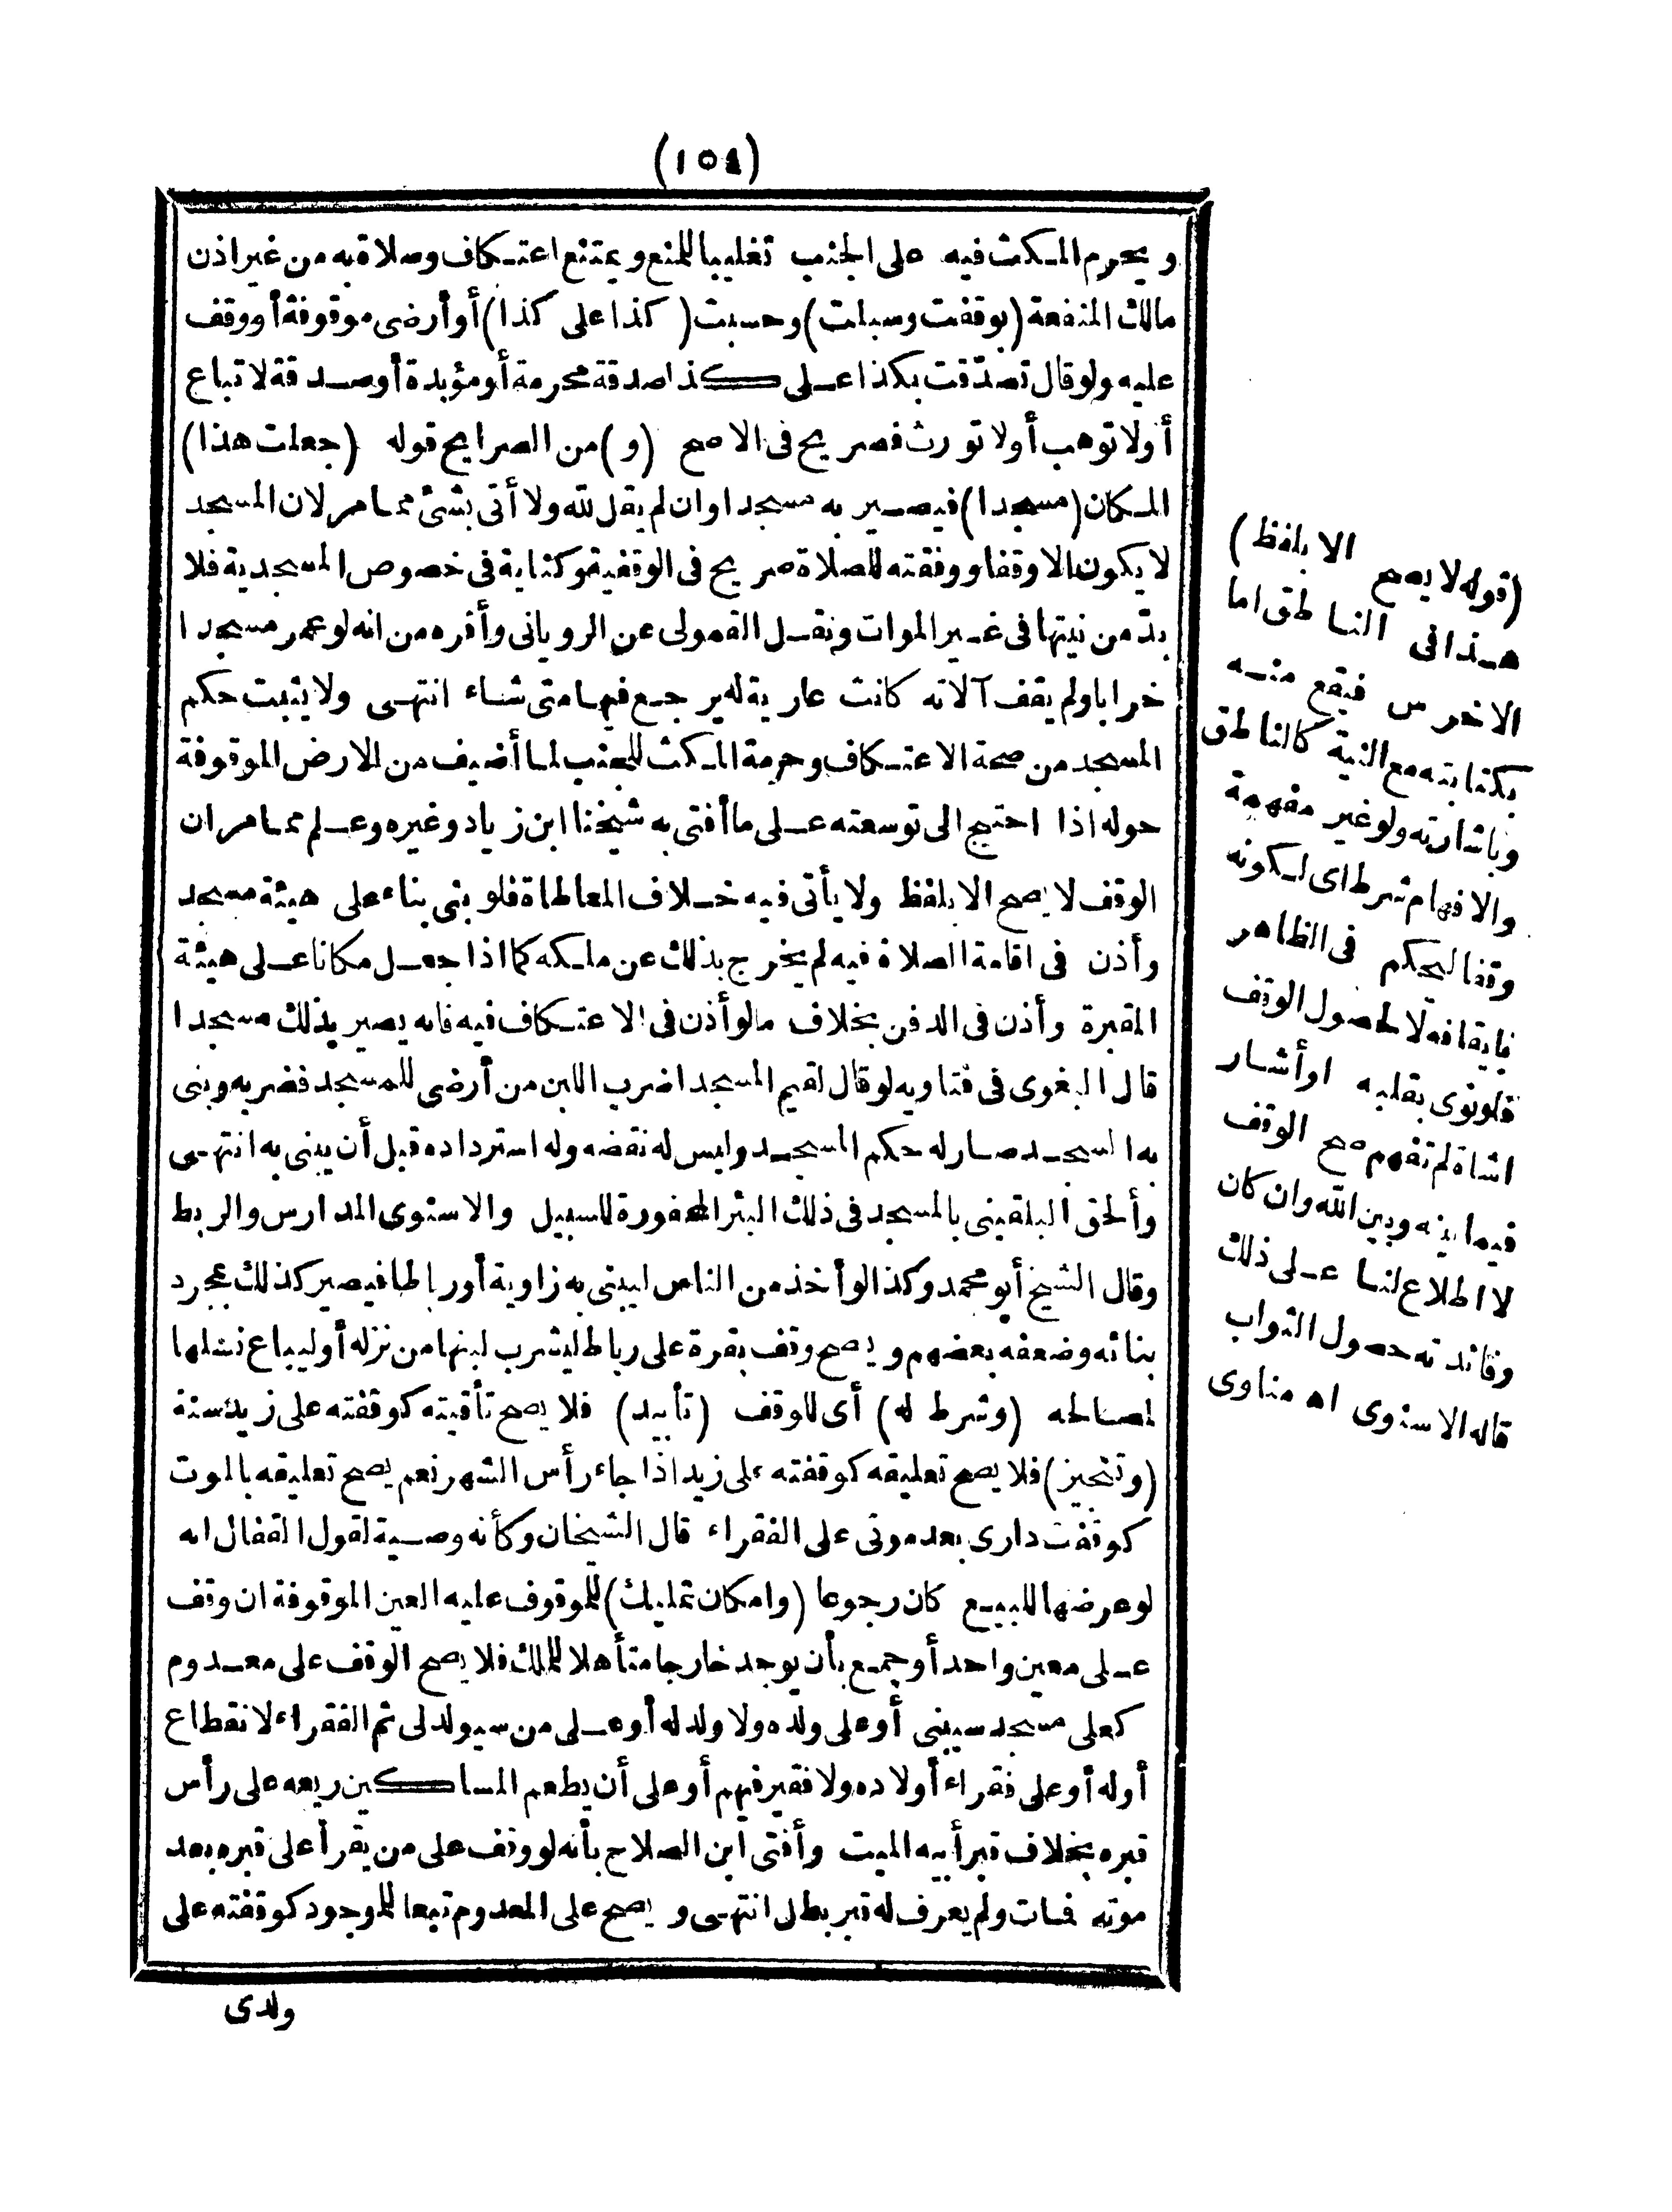 (١٥٤)
ويحرم المكث فيه على الجنب تغليبا للمنع ويمتنع اعتكاف وصلاة به من غير اذن
مالك المنفعة (بوقفت وسبلت) وحسبت (كذا على كذا) أو أرضى موقوفة أو وقف
عليه ولو قال تصدّقت بكذا على كذا صدقة محرمة أو مؤبدة أو صدقة لا تباع
أو لا توهب أو لا تورث فصريح فى الاصح (و) من الصرايح قوله (جعلت هذا)
المكان (مسجدا) فيصير به مسجدا وان لم يقل لله ولا أتى بشئ مما مر لان المسجد
لا يكون الا وقفا ووقفته للصلاة صريح فى الوقفية وكناية فى خصوص المسجدية فلا
بدّ من نيتها فى غير الموات ونقل القمولى عن الرويانى وأقره من انه لو عمر مسجدا
خرابا ولم يقف آلاته كانت عارية له يرجع فيها متى شاء انتهى ولا يثبت حكم
المسجد من صحة الاعتكاف وحرمة المكث للجنب لما أضيف من الارض الموقوفة
حوله اذا احتيج الى توسعته على ما أفتى به شيخنا ابن زياد وغيره وعلم مما مر ان
الوقف لا يصح الا بلفظ ولا يأتى فيه خلاف المعاطاة فلو بنى بناء على هيئة مسجد
وأذن فى اقامة الصلاة فيه لم يخرج بذلك عن ملكه كما اذا جعل مكانا على هيئة
المقبرة وأذن فى الدفن بخلاف مالو أذن فى الاعتكاف فيه فانه يصير بذلك مسجدا
قال البغوى فى فتاويه لو قال لقيم المسجد اضرب اللبن من أرضى للمسجد فضربه وبنى
به المسجد صار له حكم المسجد وليس له نقضه وله استرداده قبل أن يبنى به انتهى
وألحق البلقينى بالمسجد فى ذلك البئر المحفورة للسبيل والاسنوى المدارس والربط
وقال الشيخ أبو محمد وكذا لو أخذ من الناس ليبنى به زاوية أو رباطا فيصير كذلك بمجرد
بنائه وضعفه بعضهم ويصح وقف بقرة على رباط ليشرب لبنها من نزله أو ليباع نسلها
لمصالحه (وشرط له) أى للوقف (تأبيد) فلا يصح تأقيته كوقفته على زيد سنة
(وتنجيز) فلا يصح تعليقه كوقفته على زيد اذا جاء رأس الشهر نعم يصح تعليقه بالموت
كوقفت دارى بعد موتى على الفقراء قال الشيخان وكأنه وصية لقول القفال انه
لو عرضها للبيع كان رجوعا (وامكان تمليك) للموقوف عليه العين الموقوفة ان وقف
على معين واحد أو جمع بأن يوجد خارجا متأهلا للملك فلا يصح الوقف على معدوم
كعلى مسجد سيبنى أو على ولده ولا ولد له أو على من سيولد لى ثم الفقراء لانقطاع
أوله أو على فقراء أولاده ولا فقير فيهم أو على أن يطعم المساكين ريعه على رأس
قبره بخلاف قبر أبيه الميت وأفتى ابن الصلاح بأنه لو وقف على من يقرأ على قبره بعد
موته فمات ولم يعرف له قبر بطل انتهى ويصح على المعدوم تبعا للموجود كوقفته على
ولدى
(قوله لا يصح الا بلفظ)
هذا فى الناطق اما
الاخرس فيقع منه
بكتابته مع النية كالناطق
وباشارته ولو غير مفهمة
والافهام شرط اى لكونه
وقفا لحكم فى الظاهر
بايقافه لا لحصول الوقف
فلو نوى بقلبه او أشار
اشاة لم تفهم صح الوقف
فيما بينه وبين الله وان كان
لا اطلاع لنا على ذلك
وفائدته حصول الثواب
قاله الاسنوى اه مناوى